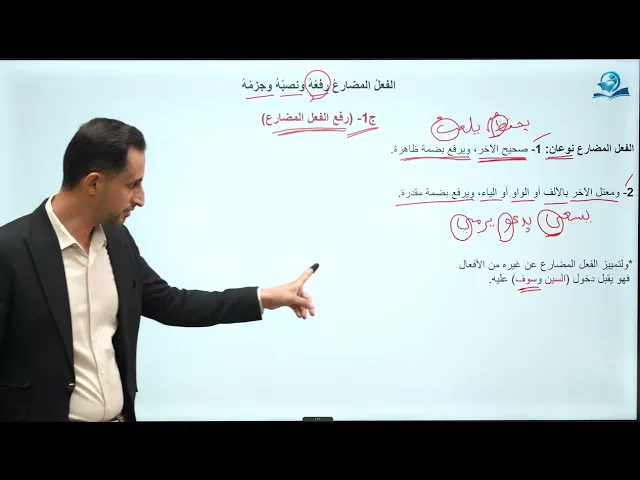 الفعل المضارعُ رفعُهُ ونصبُهُ وجزمُهُ
ج1- (رفع الفعل المضارع)
يحفظ يلعب
الفعل المضارع نوعان: 1- صحيح الآخر، ويرفع بضمة ظاهرة.
2- ومعتل الآخر بالألف أو الواو أو الياء، ويرفع بضمة مقدرة.
يسعى يدعو يرمي
*ولتمييز الفعل المضارع عن غيره من الأفعال
فهو يقبل دخول (السين وسوف) عليه.